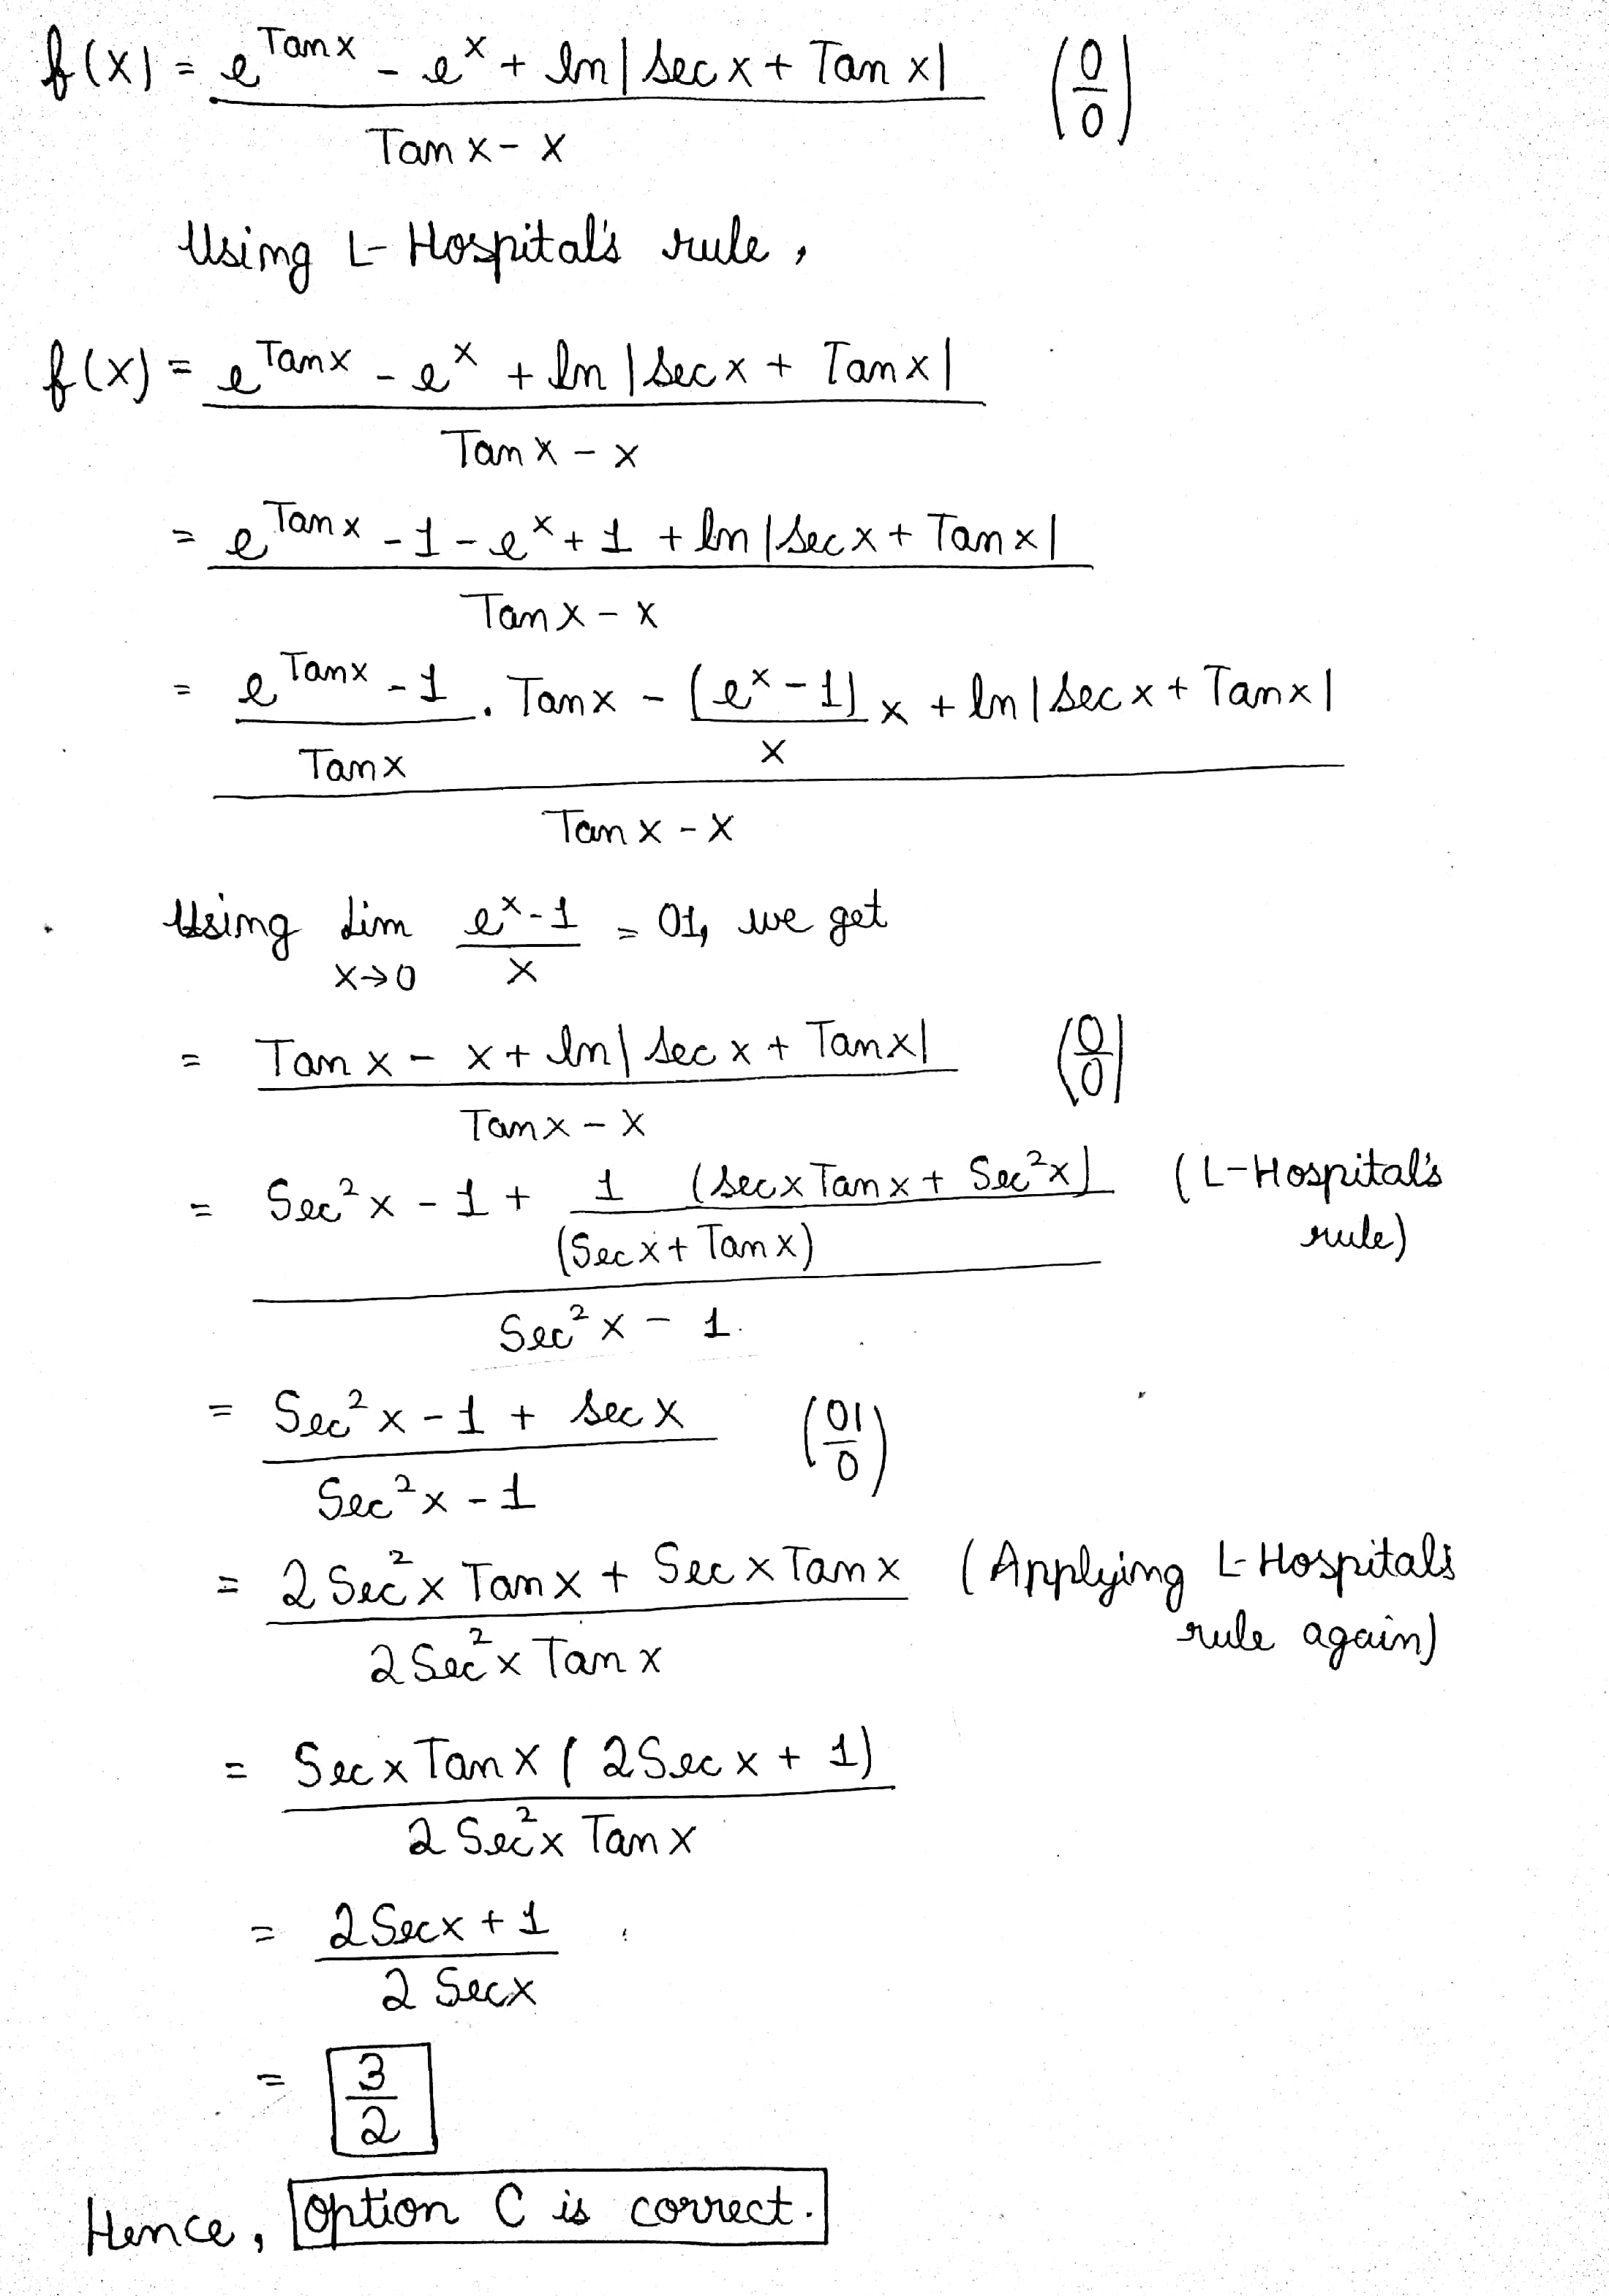 f(x) = e^{Tan x} - e^x + ln|sec x + Tan x| (0/0)
Tan x - x
Using L-Hospital's rule,
f(x) = e^{Tan x} - e^x + ln|sec x + Tan x|
Tan x - x
= e^{Tan x} - 1 - e^x + 1 + ln|sec x + Tan x|
Tan x - x
= e^{Tan x} - 1 . Tan x - (e^x - 1) x + ln|sec x + Tan x|
Tan x x
Tan x - x
Using Lim e^x - 1 = 01, we get
x→0 x
= Tan x - x + ln|sec x + Tan x| (0/0)
Tan x - x
= Sec²x - 1 + 1 (sec x Tan x + Sec²x) (L-Hospital's
(Sec x + Tan x) rule)
Sec²x - 1.
= Sec²x - 1 + sec x (01/0)
Sec²x - 1
= 2 Sec²x Tan x + Sec x Tan x (Applying L-Hospital's
2 Sec²x Tan x rule again)
= Sec x Tan x (2 Sec x + 1)
2 Sec²x Tan x
= 2 Sec x + 1
2 Sec x
= 3/2
Hence, option C is correct.